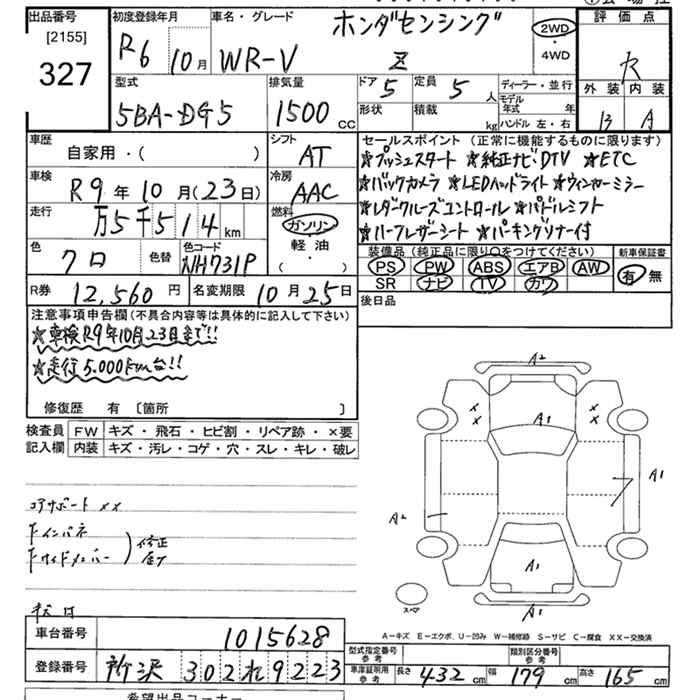 出品番号
[2155]
327
初度登録年月
R6 10月
車名・グレード
ホンダセンシング
WR-V Z
2WD
・
4WD
評価点
R
外装 内装
B A
型式
5BA-DG5
排気量
1500 cc
ドア 5
定員 5 人
形状
積載 kg
ディーラー・並行
モデル年式 年
ハンドル 左・右
車歴
自家用・( )
シフト
AT
車検
R9年10月(23日)
冷房
AAC
走行
万5千514km
燃料
ガソリン
軽油
・
( )
色
クロ
色替
色コード
NH731P
セールスポイント(正常に機能するものに限ります)
☆プッシュスタート ☆純正ナビDTV ☆ETC
☆バックカメラ ☆LEDヘッドライト ☆ウィンカーミラー
☆レダクルーズコントロール ☆パドルシフト
☆ハーフレザーシート ☆パーキングソナー付
装備品(純正品に限り○をつけてください)
PS PW ABS エアB AW
SR ナビ TV カワ
新車保証書
有 無
R券 12,560円
名変期限 10月25日
後日品
注意事項申告欄(不具合内容等は具体的に記入して下さい)
☆車検R9年10月23日まで!!
☆走行5.000km台!!
修復歴 有 〔箇所 〕
検査員記入欄
FW キズ・飛石・ヒビ割・リペア跡・×要
内装 キズ・汚レ・コゲ・穴・スレ・キレ・破レ
コアサポート ××
F インパネ
F サイドメンバー
修正
A2
A1
× ×
× ×
A1
A2
A1
A1
スペア
A-キズ E-エクボ U-凹み W-補修跡 S-サビ C-腐食 XX-交換済
車台番号 1015628
登録番号 所沢 302 れ 9223
型式指定番号 参考
類別区分番号 参考
車庫証明用 参考 長さ 432cm 幅 179cm 高さ 165cm
希望出品コーナー